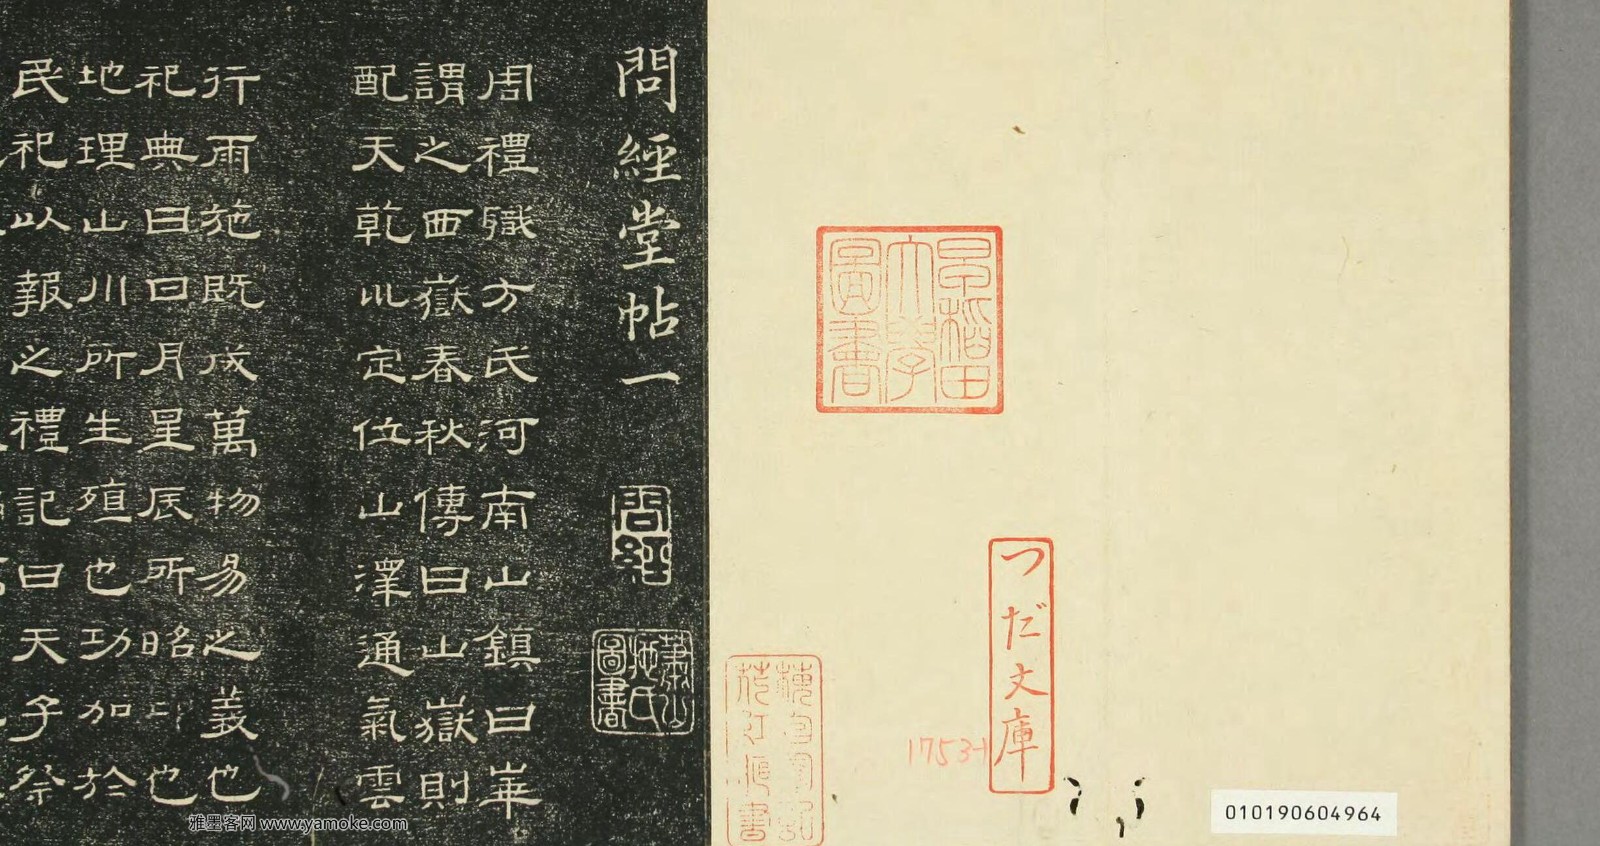 早稲田
大學
圖書
つだ文庫
1753-1
010190604964
問經堂帖一
問經
蕭山
施氏
圖書
周禮職方氏河南山鎮曰崋
謂之西嶽春秋傳曰山嶽則
配天乾㠯定位山澤通氣雲
行雨施既成萬物易之義也
祀典曰日月星辰所昭卬也
地理山川所生殖也功加於
民祀以報之禮記曰天子祭
雅墨客网 www.yamoke.com